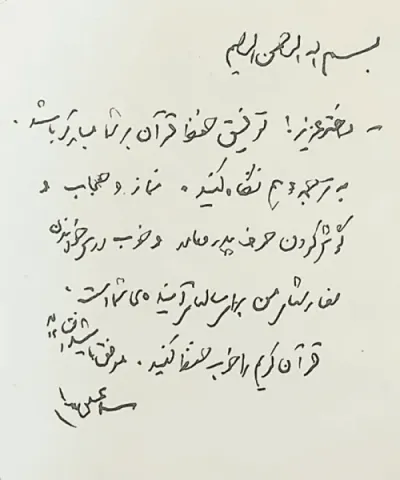 بسم الله الرحمن الرحیم
- دختر عزیز! توفیق حفظ قرآن بر شما مبارک باشد.
به ترجمه هم نگاه کنید. نماز و حجاب و
گوش کردن حرف پدر و مادر و خوب درس خواندن
سفارش من برای سالهای آینده‌ی شما است.
قرآن کریم را خوب حفظ کنید. موفق باشید
سید علی